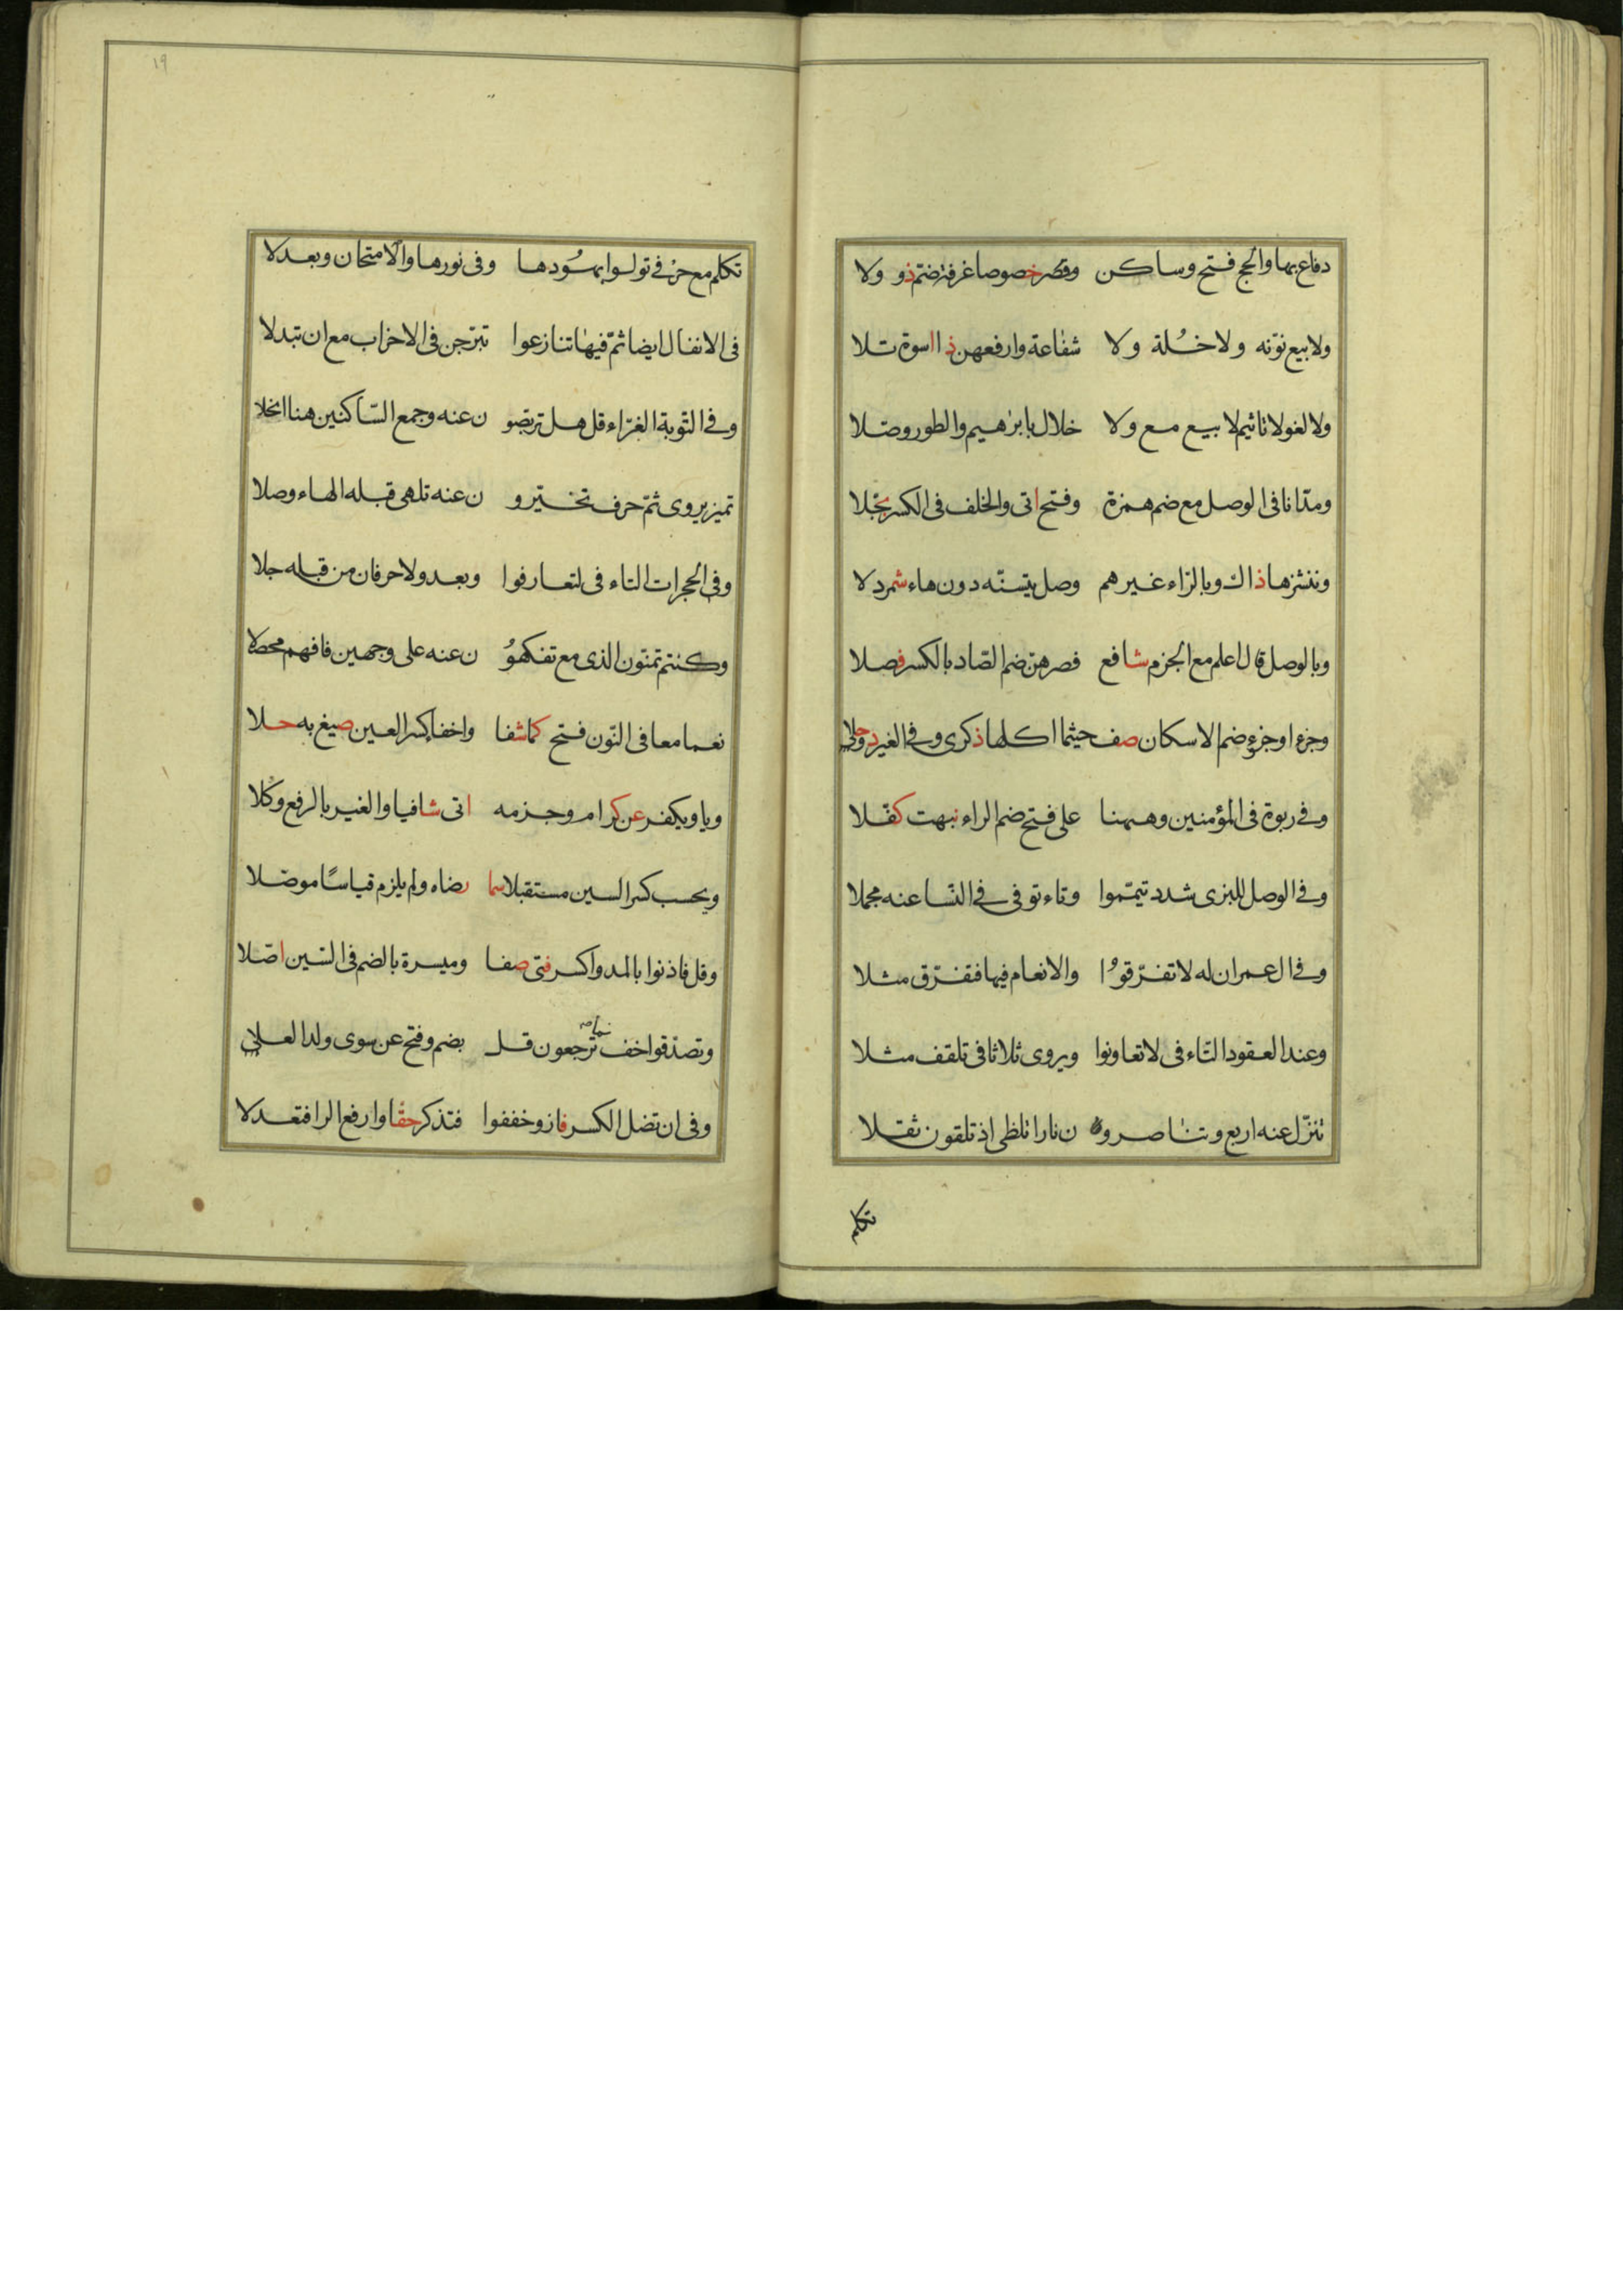 دفاع بها والحج فتح وساكن وقصر خصوصا غرفة ضم ذو ولا
ولا بيع نونه ولا خُلة ولا شفاعة وارفعهن ذا اسوة تلا
ولا لغو لا تاثيم لا بيع مع ولا خلال بابرهيم والطور وصلا
ومدّ انا فى الوصل مع ضم همزة وفتح اتى والخلف فى الكسر بجلا
وننشزها ذاك وبالزاء غيرهم وصل يتسنّه دون هاء شمردلا
وبالوصل قال اعلم مع الجزم شافع فصرهنّ ضم الصّاد بالكسر فصلا
وجزءا وجزء ضم الاسكان صف حيثما اكلها ذكرى وفى الغير ذو حلا
وفى ربوة فى المؤمنين وههنا على فتح ضم الراء نبهت كفّلا
وفى الوصل للبزى شدد تيمّموا وتاء توفى فى النّسا عنه مجملا
وفى ال عمران له لا تفرّقوُا والانعام فيها فتفرّق مثلا
وعند العقود التّاء فى لا تعاونوا ويروى ثلاثا فى تلقف مثلا
تنزّل عنه اربع وتناصرو ن نارا تلظى اذ تلقون ثقلا
تكلم
١٩
تكلم مع حرفى تولوا بهُودها وفى نورها والامتحان وبعد لا
فى الانفال ايضا ثمّ فيها تنازعوا تبرّجن فى الاحزاب مع ان تبدلا
وفى التّوبة الغرّاء قل هل تربصو ن عنه وجمع السّاكنين هنا انجلا
تميز يروى ثمّ حرف تخيّرو ن عنه تلهى قبله الهاء وصلا
وفى الحجرات التاء فى لتعارفوا وبعد ولا حرفان من قبله جلا
وكنتم تمنون الذى مع تفكهوُ ن عنه على وجهين فافهم محصلا
نعما معا فى النّون فتح كما شفا واخفا كسر العين صيغ به حلا
ويا ويكفر عن كرام وجزمه اتى شافيا والغير بالرفع وكلا
ويحسب كسر السين مستقبلا سما رضاه ولم يلزم قياسًا موصّلا
وقل فاذنوا بالمد واكسر فتى صفا وميسرة بالضم فى السّين اصّلا
وتصدّقوا خف نما ترجعون قل بضم وفتح عن سوى ولد العلا
وفى ان تضل الكسر فاز وخففوا فتذكر حقا وارفع الرا فتعدلا